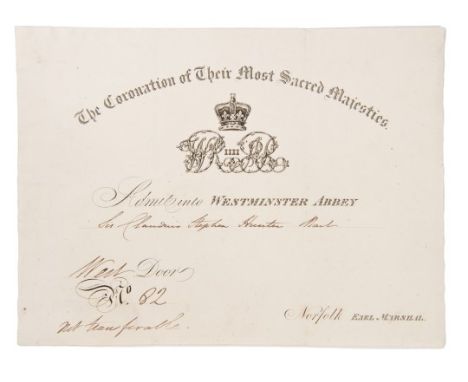 The Coronation of Their Most Sacred Majesties.
WR IIII & RA
Admit into WESTMINSTER ABBEY
Sir Claudius Stephen Hunter Bart
West Door
No. 82
not transferable.
Norfolk EARL MARSHAL.